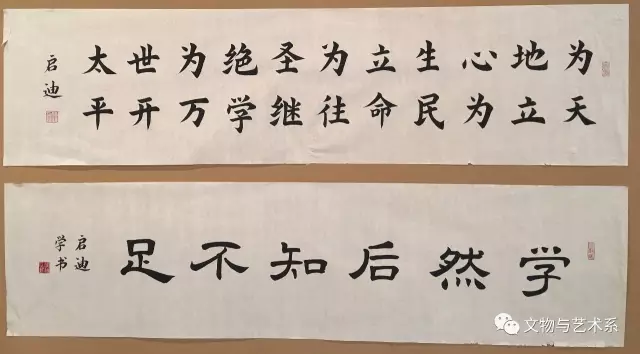 为天
地立
心为
生民
立命
为往
圣继
绝学
为万
世开
太平
启迪
学然后知不足
启迪
学书
文物与艺术系